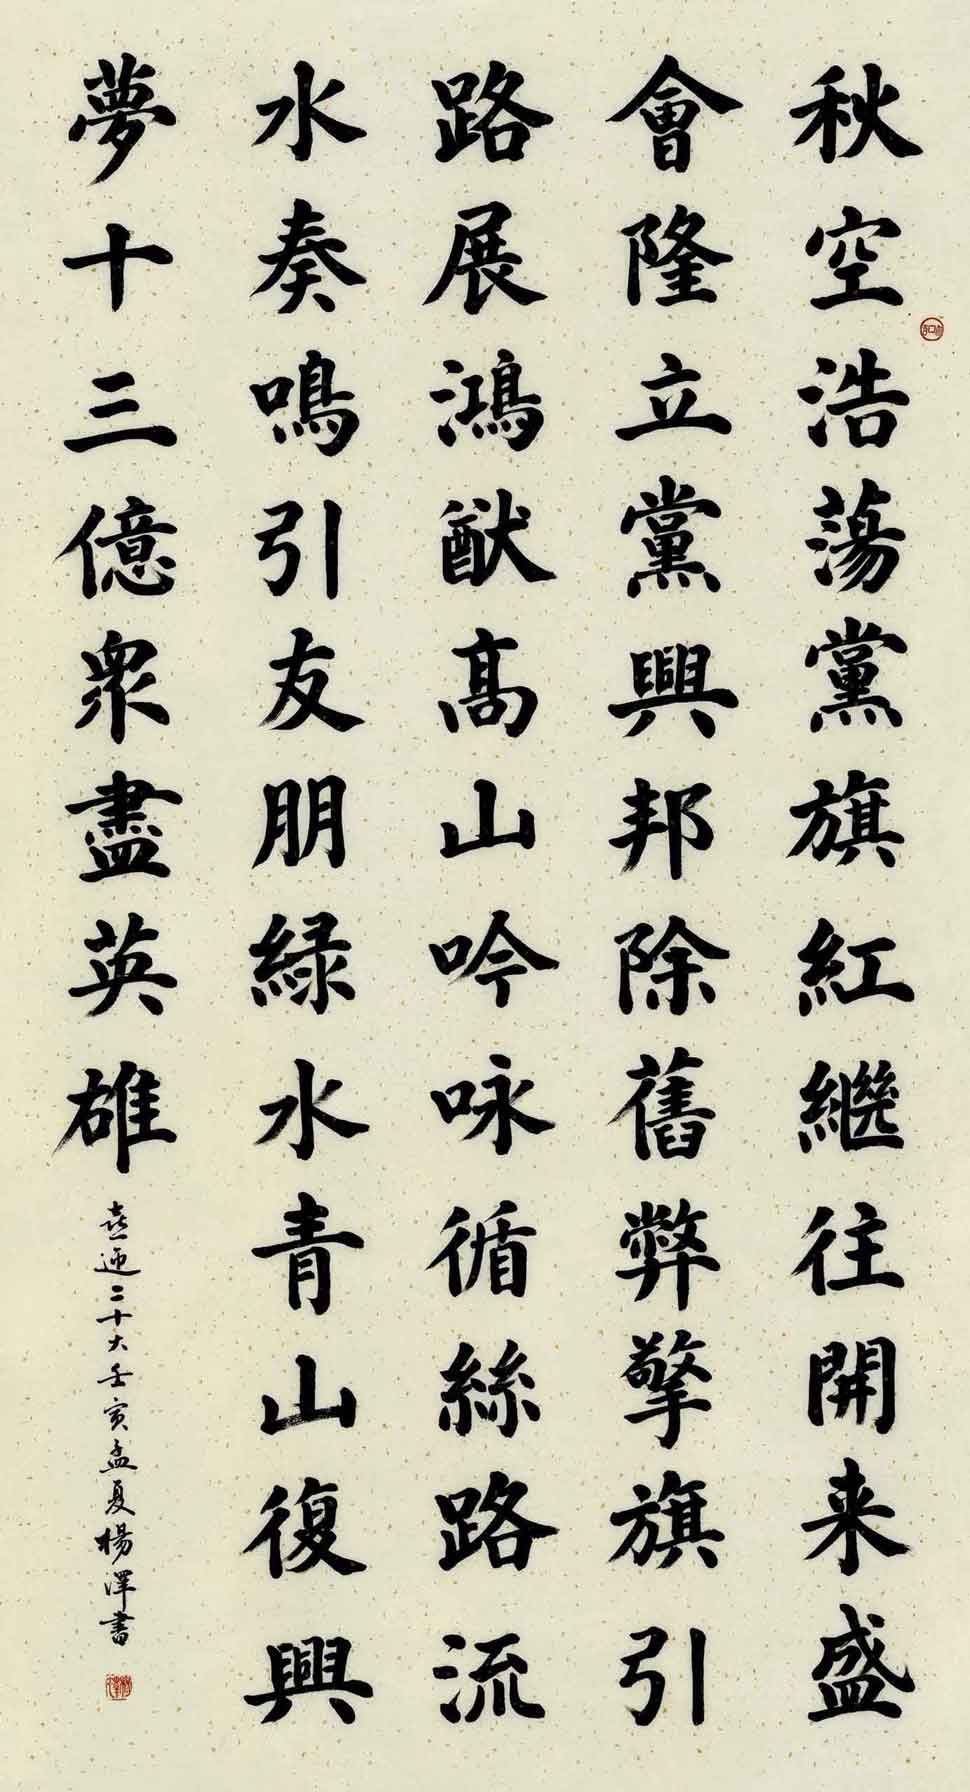 秋空浩蕩黨旗紅繼往開来盛
會隆立黨興邦除舊弊擎旗引
路展鴻猷高山吟咏循絲路流
水奏鳴引友朋緑水青山復興
夢十三億衆盡英雄
喜迎二十大壬寅孟夏楊澤書